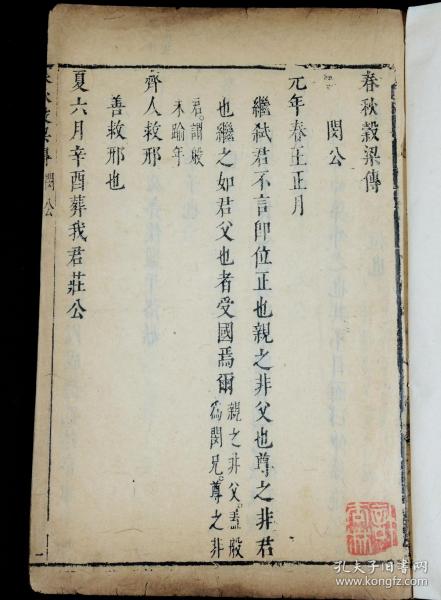 春秋穀梁傳
閔公
元年春王正月
繼弒君不言卽位正也親之非父也尊之非君
也繼之如君父也者受國焉爾親之非父。盖般
爲閔兄。尊之非
君。謂般
未踰年
齊人救邢
善救邢也
夏六月辛酉葬我君莊公
閔公
孔夫子旧书网